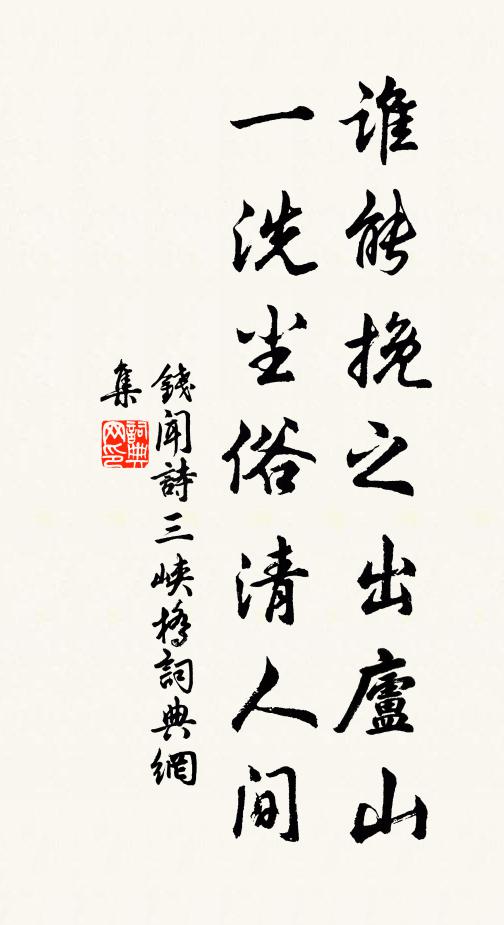 谁能挽之出廬山
一洗尘俗清人间
錢聞詩三峡橋詞典網
集
詞典网印